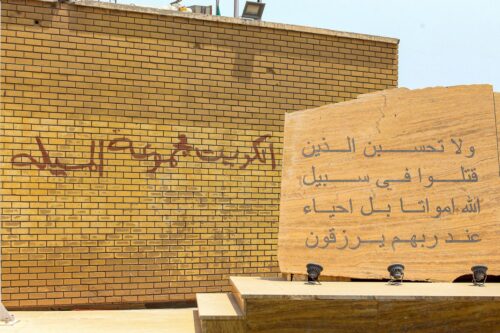 الكويت مجموعة المسيله
ولا تحسبن الذين
قتلوا فى سبيل
الله امواتا بل احياء
عند ربهم يرزقون